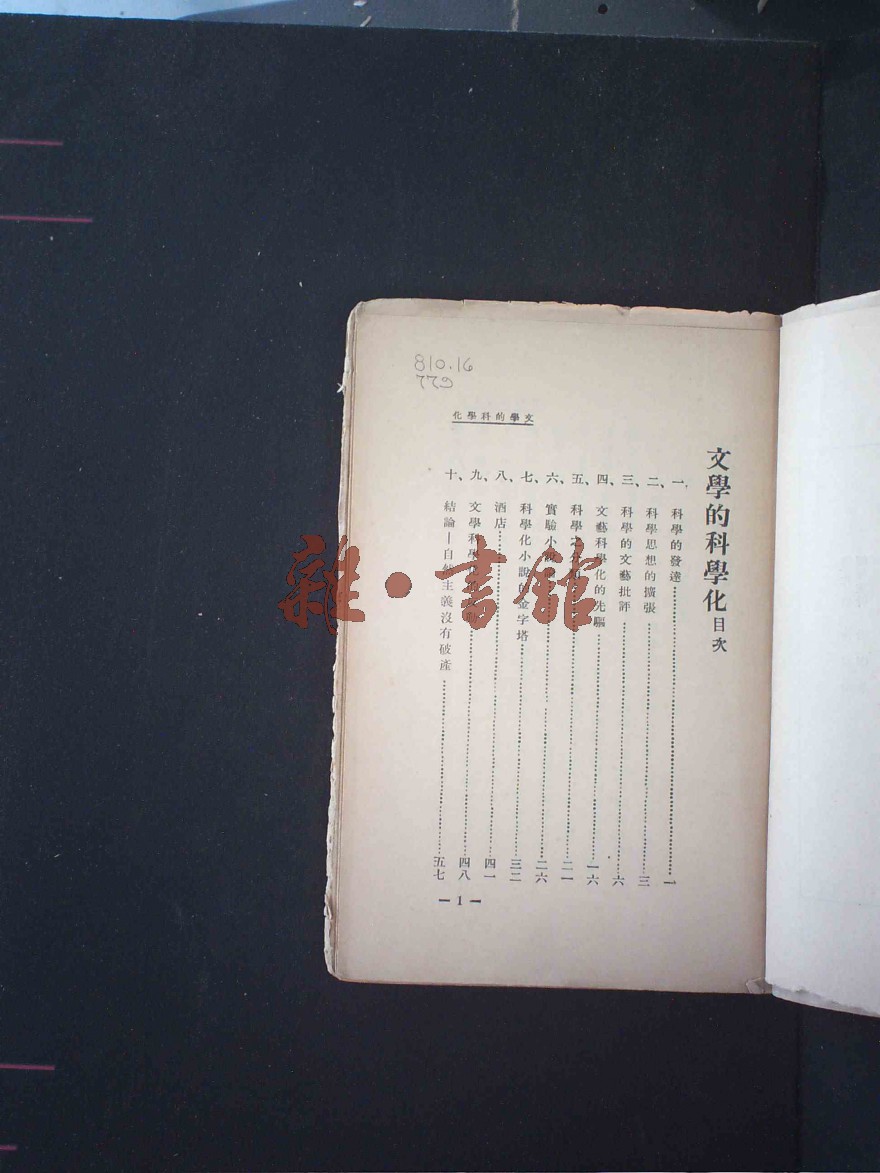 810.16
779
化學科的學文
文學的科學化目次
一、科學的發達……一
二、科學思想的擴張……三
三、科學的文藝批評……六
四、文藝科學化的先驅……一六
五、科學……二一
六、實驗小說……二六
七、科學化小說的金字塔……三二
八、酒店……四一
九、文學科學……四八
十、結論—自然主義沒有破產……五七
— 1 —
雜·書館